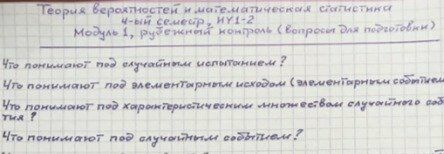 Теория вероятностей и математическая статистика
4-ый семестр, ИУ1-2
Модуль 1, рубежный контроль (вопросы для подготовки)
Что понимают под случайным испытанием?
Что понимают под элементарным исходом (элементарным событием
Что понимают под характеристическим множеством случайного собы
тия?
Что понимают под случайным событием?